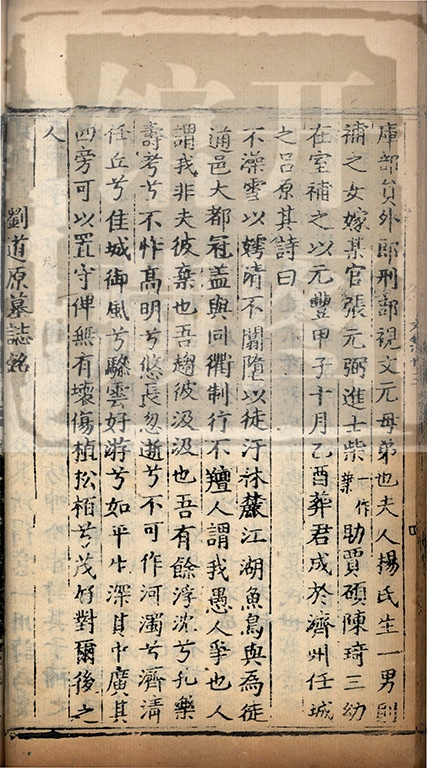 庫部員外郎刑部視文元母弟也夫人楊氏生一男則
補之女嫁某官張元弼進士柴一作葉助賈碩陳琦三幼
在室補之以元豐甲子十月乙酉葬君成於濟州任城
之呂原其詩曰
不澡雪以嫮清不闒隋以徒汙林麓江湖魚鳥與為徒
通邑大都冠蓋與同衢制行不羶人謂我愚人爭也人
謂我非夫彼棄也吾趨彼汲汲也吾有餘浮沈兮孔樂
壽考兮不怍高明兮悠長忽逝兮不可作河濁兮濟清
任丘兮佳城御風兮驂雲好游兮如平生深其中廣其
四旁可以置守俾無有壞傷植松栢兮茂好對爾後之
人
劉道原墓誌銘
四